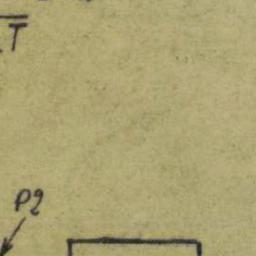 T
P2